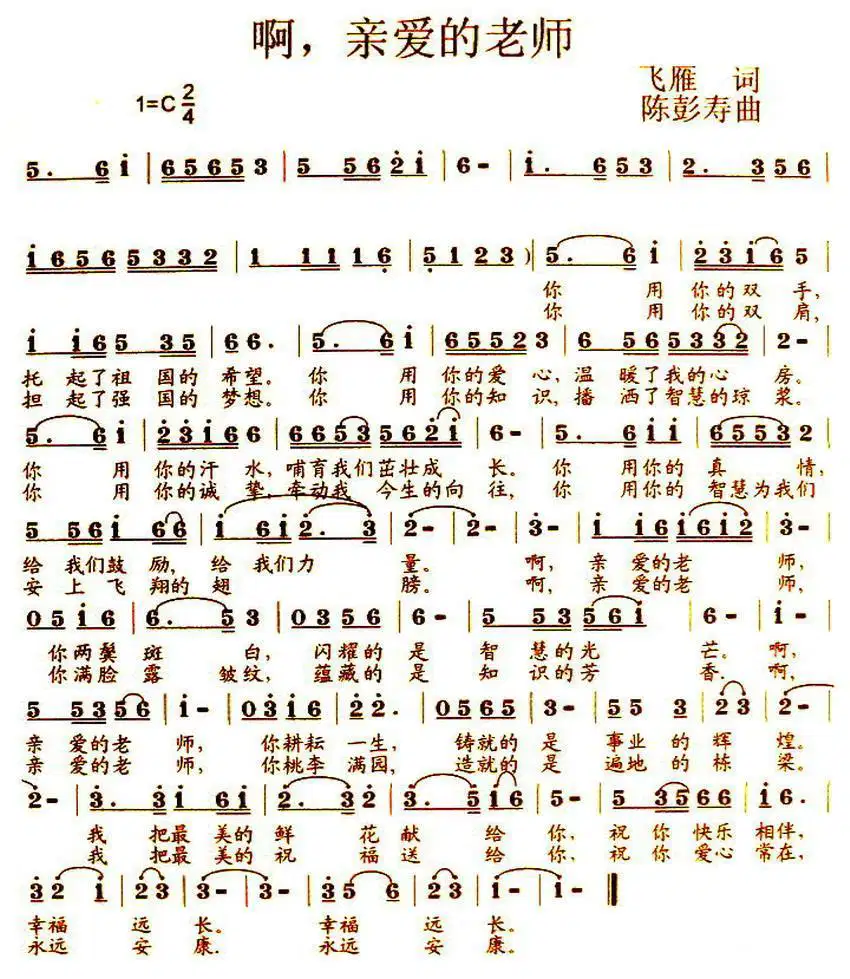 啊，亲爱的老师
飞雁 词
1=C 2/4
陈彭寿曲
5. 6 i | 6 5 6 5 3 | 5 5 6 2 i | 6 - | i. 6 5 3 | 2. 3 5 6 |
i 6 5 6 5 3 3 2 | 1 1 1 1 6 | 5 1 2 3 ) | 5. 6 i | 2 3 i 6 5 |
你 用 你的双 手，
你 用 你的双 肩，
i i 6 5 3 5 | 6 6. | 5. 6 i | 6 5 5 2 3 | 6 5 6 5 3 3 2 | 2 - |
托 起了祖 国的 希望。你 用 你的爱 心，温 暖了我的心 房。
担 起了强 国的 梦想。你 用 你的知 识，播 洒了智慧的琼 浆。
5. 6 i | 2 3 i 6 6 | 6 6 5 3 5 6 2 i | 6 - | 5. 6 i i | 6 5 5 3 2 |
你 用 你的汗 水，哺育我们茁壮成 长。你 用你的 真 情，
你 用 你的诚 挚，牵动我 今生的向 往，你 用你的 智慧为我们
5 5 6 i 6 6 | i 6 i 2. 3 | 2 - | 2 - | 3 - | i i 6 i 6 i 2 | 3 - |
给 我们鼓 励，给 我们力 量。 啊，亲 爱的老 师，
安 上 飞 翔的 翅 膀。 啊，亲 爱的老 师，
0 5 i 6 | 6. 5 3 | 0 3 5 6 | 6 - | 5 5 3 5 6 i | 6 - | i - |
你两鬓 斑 白，闪耀的 是 智 慧的光 芒。啊，
你满脸 露 皱纹，蕴藏的 是 知 识的芳 香．啊，
5 5 3 5 6 | i - | 0 3 i 6 | 2 2. | 0 5 6 5 | 3 - | 5 5 3 | 2 3 | 2 - |
亲 爱的老 师， 你耕耘 一生， 铸就的 是 事业 的 辉 煌。
亲 爱的老 师， 你桃李 满园， 造就的 是 遍地 的 栋 梁。
2 - | 3. 3 i 6 i | 2. 3 2 | 3. 5 i 6 | 5 - | 5 3 5 6 6 | i 6. |
我 把最 美的 鲜 花 献 给 你，祝 你 快乐 相伴，
我 把最 美的 祝 福 送 给 你，祝 你 爱心 常在，
3 2 i | 2 3 | 3 - | 3 - | 3. 5 6 | 2 3 | i - | i - ‖
幸福 远 长。 幸福 远 长。
永远 安 康． 永远 安 康。